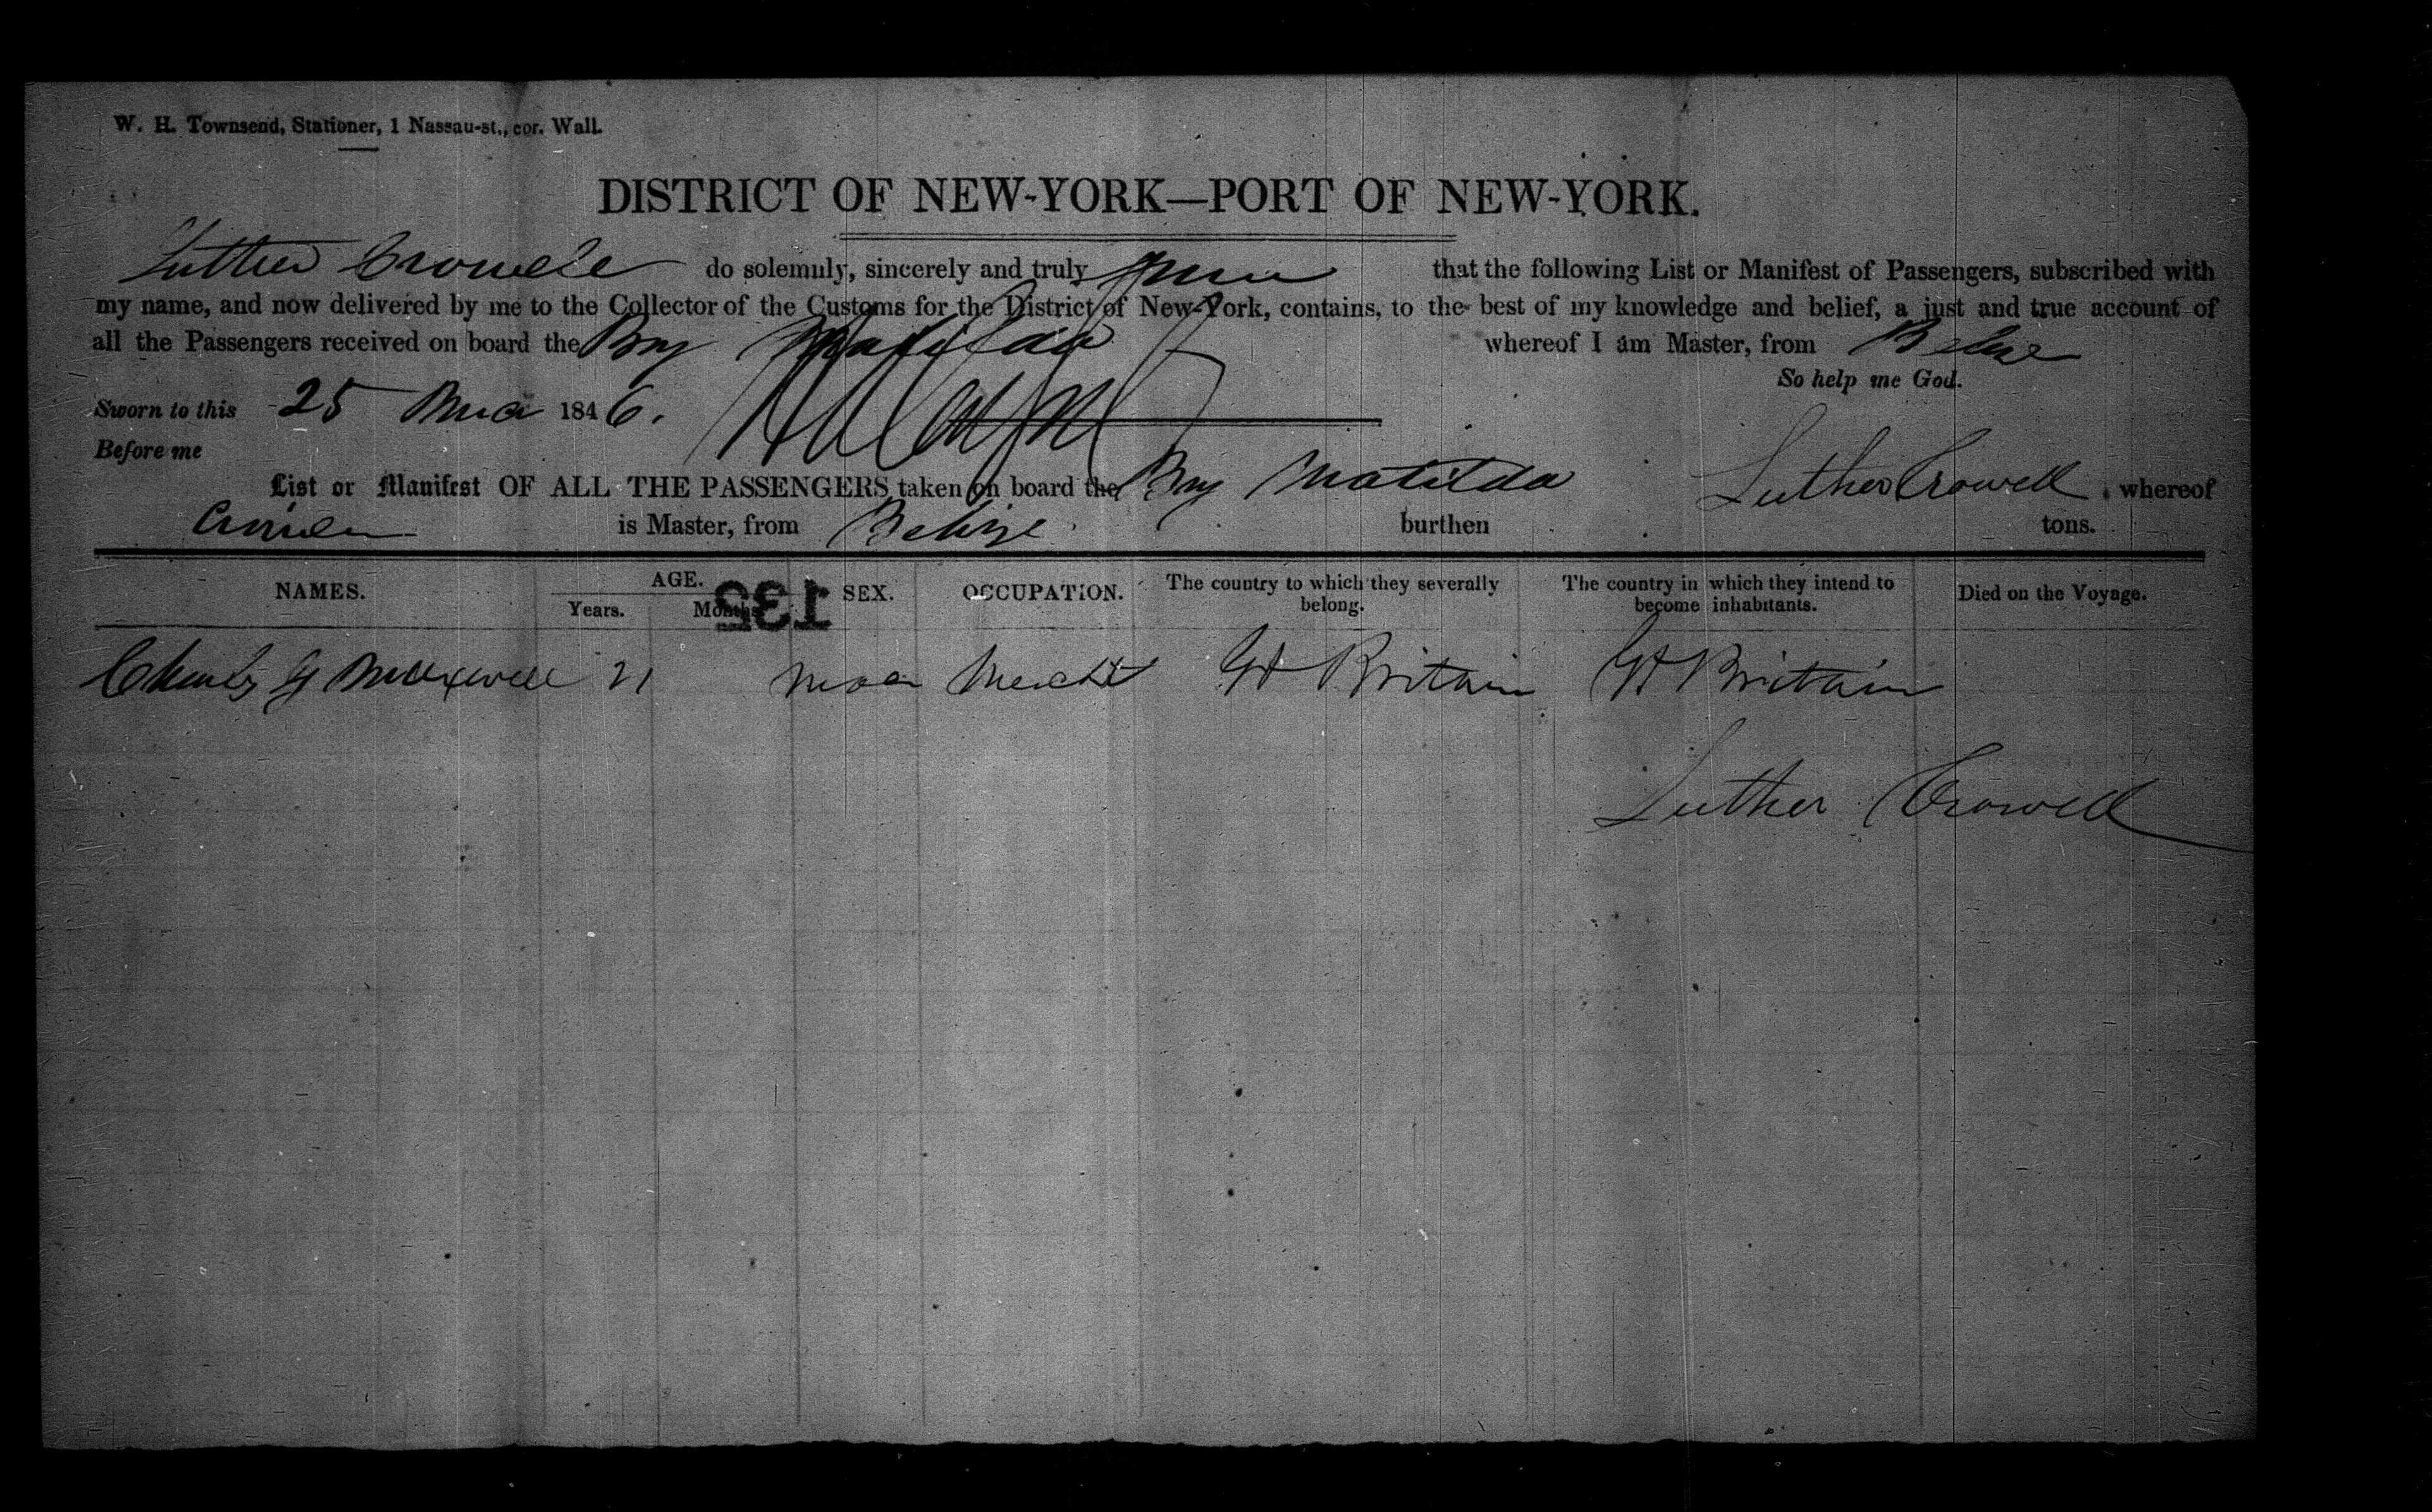 W. H. Townsend, Stationer, 1 Nassau-st., cor. Wall.
DISTRICT OF NEW-YORK—PORT OF NEW-YORK.
Luther Crowell do solemnly, sincerely and truly that the following List or Manifest of Passengers, subscribed with
my name, and now delivered by me to the Collector of the Customs for the District of New-York, contains, to the best of my knowledge and belief, a just and true account of
all the Passengers received on board the Brig Matilda whereof I am Master, from Belize
So help me God.
Sworn to this 25 1846.
Before me
List or Manifest OF ALL THE PASSENGERS taken on board the Brig Matilda Luther Crowell, whereof
is Master, from Belize burthen tons.
NAMES. AGE. SEX. OCCUPATION. The country to which they severally belong. The country in which they intend to become inhabitants. Died on the Voyage.
Years. Months.
135
Charles G Maxwell 21 Mercht Gt Britain Gt Britain
Luther Crowell